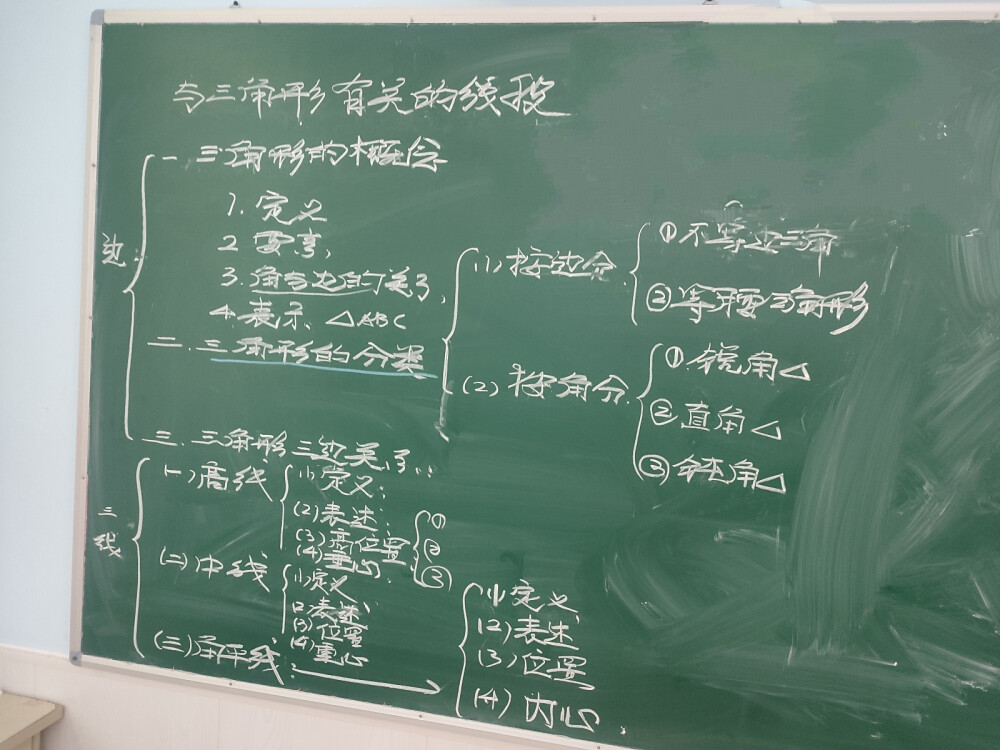 与三角形有关的线段
边:
一 三角形的概念
1. 定义
2 要素,
3. 角与边的关系,
4. 表示、△ABC
二. 三角形的分类
(1) 按边分
①不等边三角
②等腰三角形
(2) 按角分.
①.锐角△
②直角△
③钝角△
三. 三角形三边关系:
三线
(一)高线
(1)定义:
(2)表述:
(3)高位置
①
②
③
(4)垂心
(二)中线
(1)定义
(2)表述
(3)位置
(4)重心
(三)角平线:
(1)定义
(2)表述
(3)位置
(4)内心.